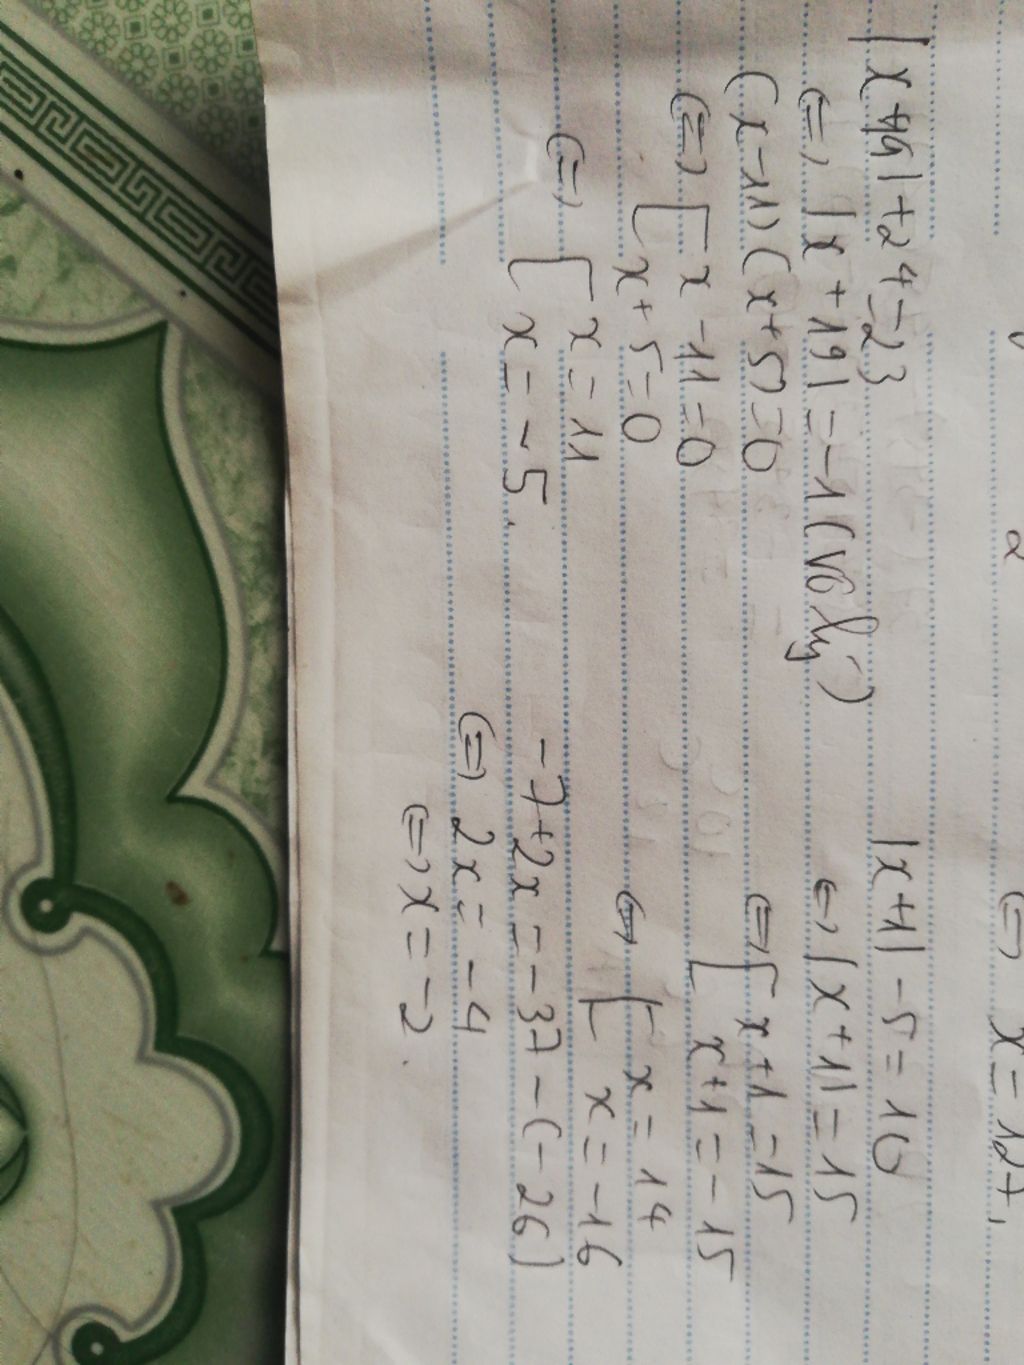 ⇔ x = 12
|x+19| + 24 = 23
⇔ |x + 19| = -1 (vô lý)
(x - 11)(x + 5) = 0
⇔ [ x - 11 = 0
[ x + 5 = 0
⇔ [ x = 11
[ x = -5.
|x+1| - 5 = 10
⇔ |x+1| = 15
⇔ [ x+1 = 15
[ x+1 = -15
⇔ [ x = 14
[ x = -16
-7+2x = -37 - (-26)
⇔ 2x = -4
⇔ x = -2.